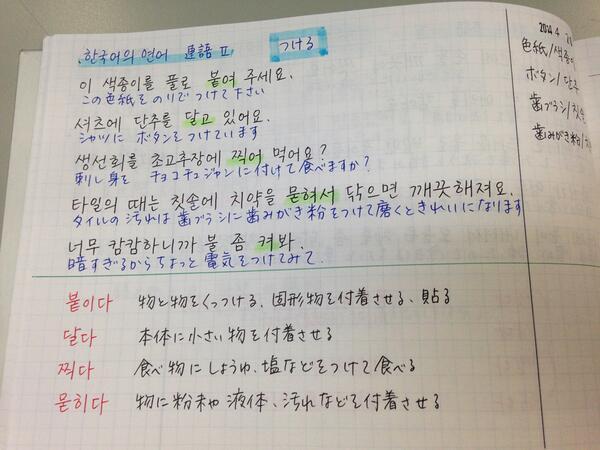 한국어의 연어 連語 Ⅱ つける
이 색종이를 풀로 붙여 주세요.
この色紙をのりでつけて下さい
셔츠에 단추를 달고 있어요.
シャツにボタンをつけています
생선회를 초고추장에 찍어 먹어요?
刺し身を チョコチュジャンに付けて食べますか?
타일의 때는 칫솔에 치약을 묻혀서 닦으면 깨끗해져요.
タイルの汚れは歯ブラシに歯みがき粉をつけて磨くときれいになります
너무 캄캄하니까 불 좀 켜봐.
暗すぎるからちょっと電気をつけてみて.
붙이다 物と物をくっつける、固形物を付着させる、貼る
달다 本体に小さい物を付着させる
찍다 食べ物にしょうゆ、塩などをつけて食べる
묻히다 物に粉末や液体、汚れなどを付着させる
2014.4
色紙/색종이
ボタン/단추
歯ブラシ/칫솔
歯みがき粉/